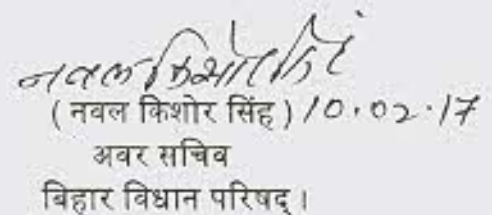 नवल किशोर सिंह
( नवल किशोर सिंह ) 10.02.17
अवर सचिव
बिहार विधान परिषद् ।